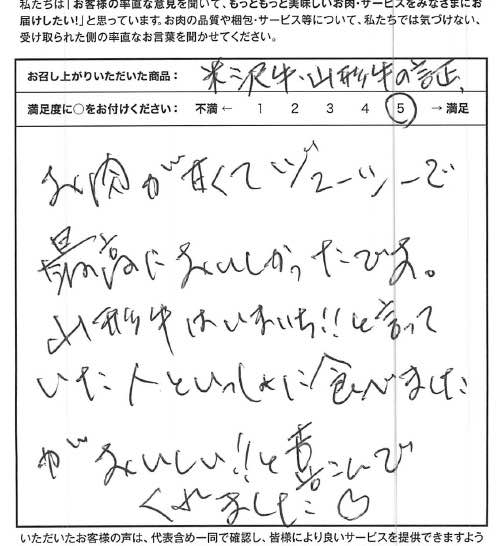 私たちは「お客様の率直な意見を聞いて、もっともっと美味しいお肉・サービスをみなさまにお
届けしたい!」と思っています。お肉の品質や梱包・サービス等について、私たちでは気づけない、
受け取られた側の率直なお言葉を聞かせてください。
お召し上がりいただいた商品： 米沢牛・山形牛の証
満足度に○をお付けください： 不満 ← 1 2 3 4 5 → 満足
お肉が甘くてジューシーで
最高においしかったです。
山形牛はいまいち!!と言って
いた人といっしょに食べました
がおいしい!!と喜こんで
くれました♡
いただいたお客様の声は、代表含め一同で確認し、皆様により良いサービスを提供できますよう